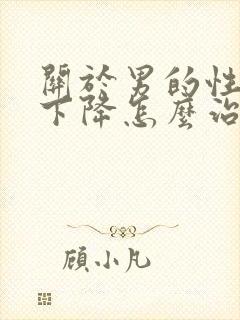 關於男的性
下降怎麼治
顧小凡